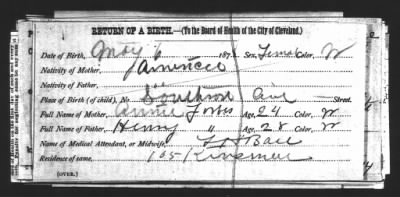 RETURN OF A BIRTH.—(To the Board of Health of the City of Cleveland.)
Date of Birth, May 6 187 Sex, Female Color, W
Nativity of Mother, America
Nativity of Father, "
Place of Birth (of child), No. Southern Ave Street.
Full Name of Mother, Annie Age, 24 Color, W
Full Name of Father, Henry " Age, 28 Color, W
Name of Medical Attendant, or Midwife, Ball
Residence of same, 165 Kinsman
(OVER.)